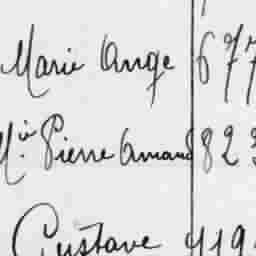 Marie Ange 677
Pierre Amand 823
Gustave 919